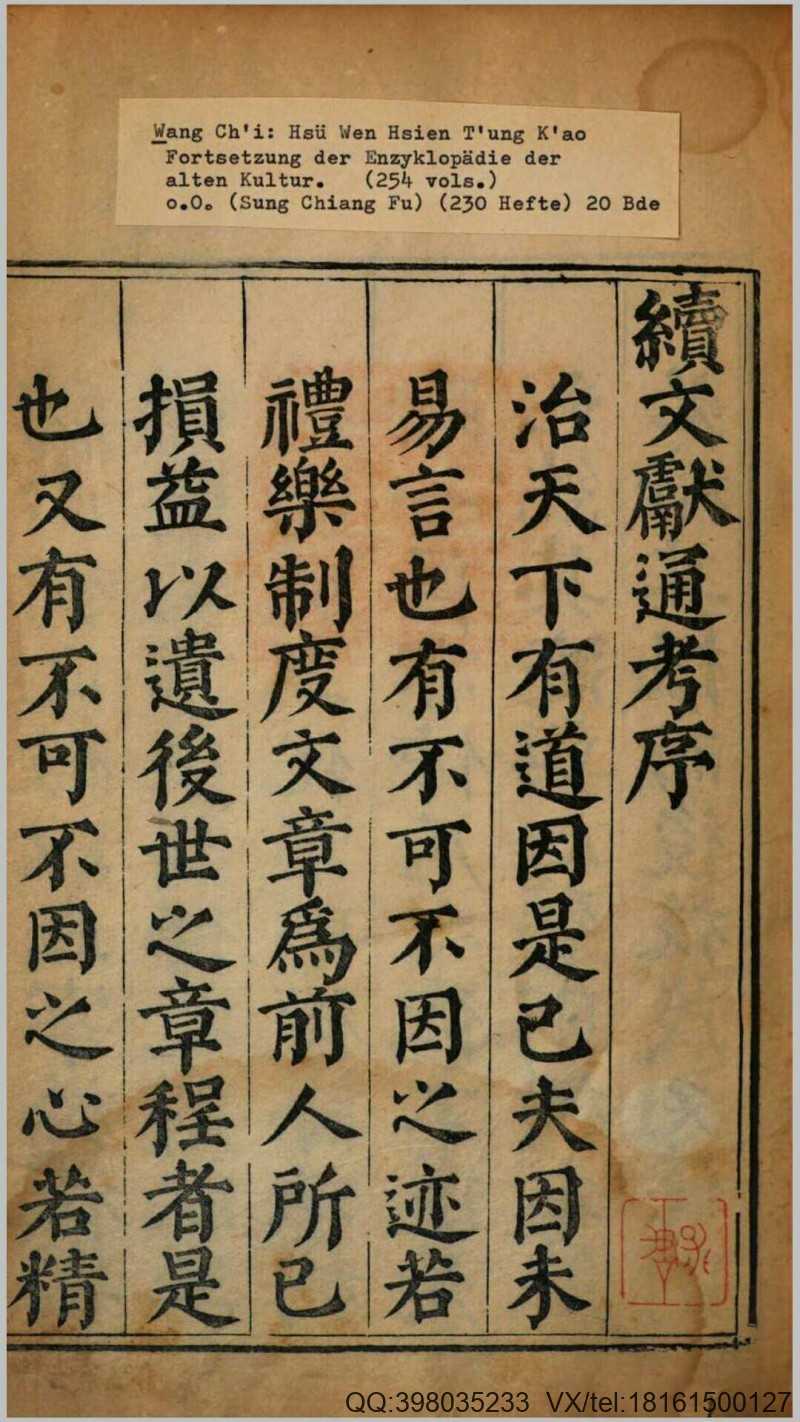 Wang Ch'i: Hsü Wen Hsien T'ung K'ao
Fortsetzung der Enzyklopädie der
alten Kultur. (254 vols.)
o.O. (Sung Chiang Fu) (230 Hefte) 20 Bde
續文獻通考序
治天下有道因是已夫因未
易言也有不可不因之迹若
禮樂制度文章爲前人所已
損益以遺後世之章程者是
也又有不可不因之心若精
QQ:398035233 VX/tel:18161500127